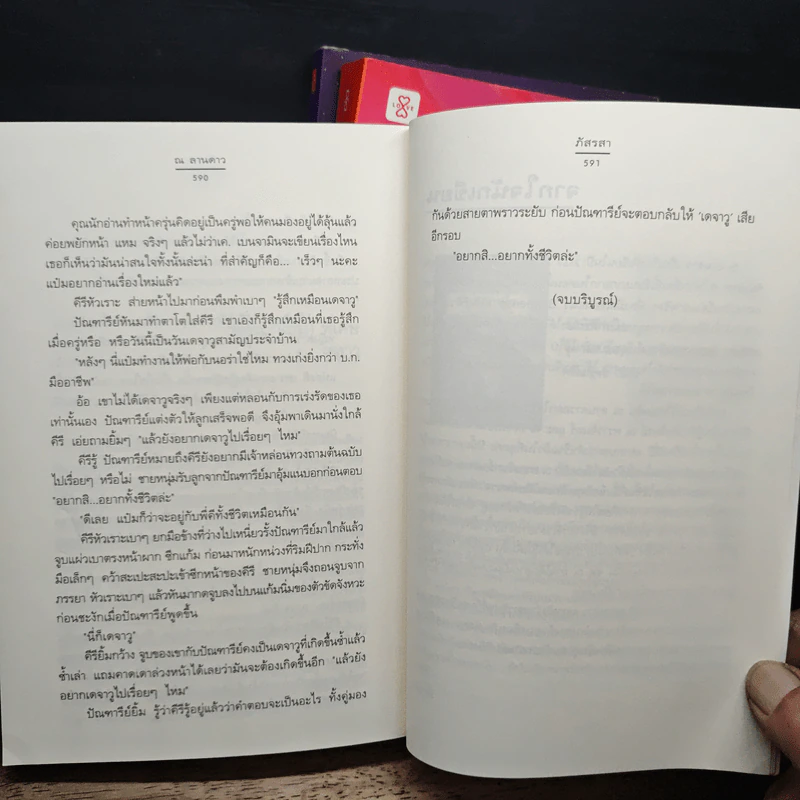 ณ ลานดาว
590
คุณนักอ่านทำหน้าครุ่นคิดอยู่เป็นครู่พอให้คนมองอยู่ได้ลุ้นแล้ว
ค่อยพยักหน้า แหม จริงๆ แล้วไม่ว่าเค. เบนจามินจะเขียนเรื่องไหน
เธอก็เห็นว่ามันน่าสนใจทั้งนั้นล่ะน่า ที่สำคัญก็คือ... "เร็วๆ นะคะ
แป้มอยากอ่านเรื่องใหม่แล้ว"
คีรีหัวเราะ ส่ายหน้าไปมาก่อนพึมพำเบาๆ "รู้สึกเหมือนเดจาวู"
ปัณฑารีย์หันมาทำตาโตใส่คีรี เขาเองก็รู้สึกเหมือนที่เธอรู้สึก
เมื่อครู่หรือ หรือวันนี้เป็นวันเดจาวูสามัญประจำบ้าน
"หลังๆ นี่แป้มทำงานให้พ่อกับนอร่าใช่ไหม ทวงเก่งยิ่งกว่า บ.ก.
มืออาชีพ"
อ้อ เขาไม่ได้เดจาวูจริงๆ เพียงแต่หลอนกับการเร่งรัดของเธอ
เท่านั้นเอง ปัณฑารีย์แต่งตัวให้ลูกเสร็จพอดี จึงอุ้มพาเดินมานั่งใกล้
คีรี เอ่ยถามยิ้มๆ "แล้วยังอยากเดจาวูไปเรื่อยๆ ไหม"
คีรีรู้ ปัณฑารีย์หมายถึงคีรียังอยากมีเจ้าหล่อนทวงถามต้นฉบับ
ไปเรื่อยๆ หรือไม่ ชายหนุ่มรับลูกจากปัณฑารีย์มาอุ้มแนบอกก่อนตอบ
"อยากสิ...อยากทั้งชีวิตล่ะ"
"ดีเลย แป้มก็ว่าจะอยู่กับพี่คีทั้งชีวิตเหมือนกัน"
คีรีหัวเราะเบาๆ ยกมือข้างที่ว่างไปเหนี่ยวรั้งปัณฑารีย์มาใกล้แล้ว
จูบแผ่วเบาตรงหน้าผาก ซีกแก้ม ก่อนมาหนักหน่วงที่ริมฝีปาก กระทั่ง
มือเล็กๆ คว้าสะเปะสะปะเข้าซีกหน้าของคีรี ชายหนุ่มจึงถอนจูบจาก
ภรรยา หัวเราะเบาๆ แล้วหันมากดจูบลงไปบนแก้มนิ่มของตัวขัดจังหวะ
ก่อนชะงักเมื่อปัณฑารีย์พูดขึ้น
"นี่ก็เดจาวู"
คีรียิ้มกว้าง จูบของเขากับปัณฑารีย์คงเป็นเดจาวูที่เกิดขึ้นซ้ำแล้ว
ซ้ำเล่า แถมคาดเดาล่วงหน้าได้เลยว่ามันจะต้องเกิดขึ้นอีก "แล้วยัง
อยากเดจาวูไปเรื่อยๆ ไหม"
ปัณฑารีย์ยิ้ม รู้ว่าคีรีรู้อยู่แล้วว่าคำตอบจะเป็นอะไร ทั้งคู่มอง
ภัสรสา
591
กันด้วยสายตาพราวระยับ ก่อนปัณฑารีย์จะตอบกลับให้ 'เดจาวู' เสีย
อีกรอบ
"อยากสิ...อยากทั้งชีวิตล่ะ"
(จบบริบูรณ์)